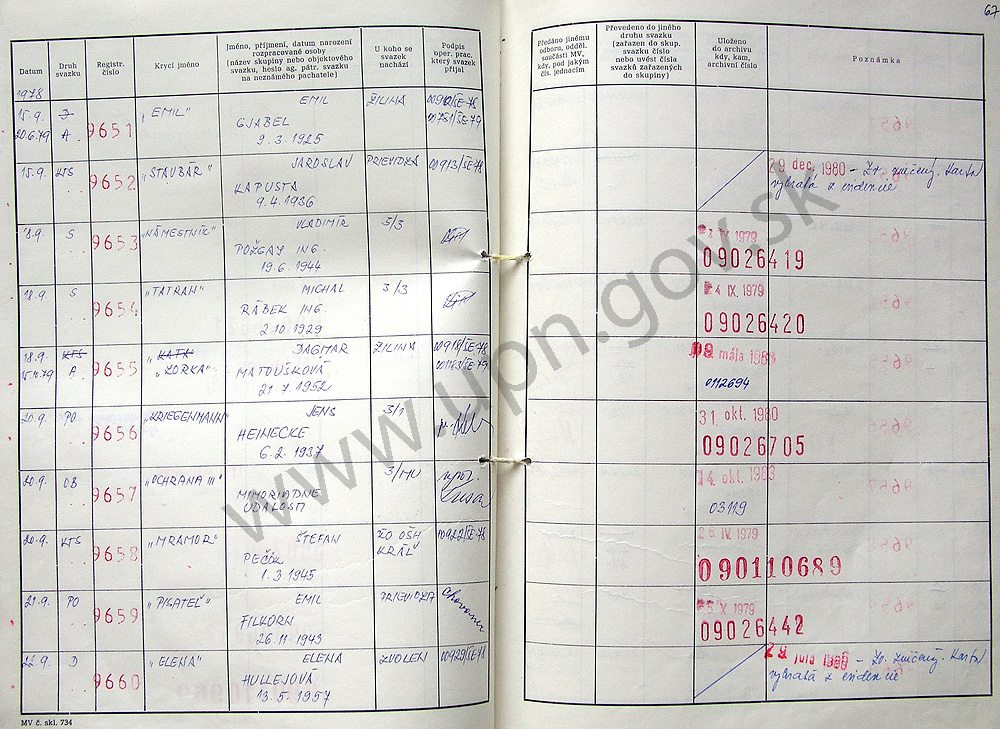 67
Datum
Druh svazku
Registr. číslo
Krycí jméno
Jméno, příjmení, datum narození
rozpracované osoby
(název skupiny nebo objektového
svazku, heslo ag. pátr. svazku
na neznámého pachatele)
U koho se
svazek
nachází
Podpis
oper. prac.
který svazek
přijal
Předáno jinému
odboru, odděl.
součásti MV,
kdy, pod jakým
čís. jednacím
Převedeno do jiného
druhu svazku
(zařazen do skup.
svazku číslo
nebo uvést čísla
svazků zařazených
do skupiny)
Uloženo
do archivu
kdy, kam,
archivní číslo
Poznámka
1978
15.9. D 9651 „EMIL" EMIL ŽILINA
20.6.79 A GJABEL
9.3.1925
15.9. KTS 9652 „STAVBÁR" JAROSLAV PRIEVIDZA 00913/ŠE-78 29 dec. 1980 - Zv. zničený. Karta
KAPUSTA vybratá z evidencie
9.4.1936
18.9. S 9653 „NÁMESTNÍK" VLADIMÍR 3/3 IV. 1979
POŽGAY ING. 09026419
19.6.1944
18.9. S 9654 „TATRAN" MICHAL 3/3 4 IX. 1979
RÁBEK ING. 09026420
2.10.1929
18.9. KTS 9655 „KATA" DAGMAR ŽILINA 00918/ŠE-78 mája
15.10.79 A „ZORKA" MATOUŠKOVÁ 001163/ŠE-79 0112694
21.7.1952
20.9. PO 9656 „KRIEGENMANN" JENS 3/1 31 okt. 1980
HEINECKE 09026705
6.2.1937
20.9. OB 9657 „OCHRANA III" 3/MU 14. okt.
MIMORIADNE 03119
UDALOSTI
20.9. KTS 9658 „MRAMOR" ŠTEFAN ZO OŠH 00922/ŠE-78 26 IV 1979
PEČÍK KRÁĽ 090110689
1.3.1945
21.9. PO 9659 „PISATEĽ" EMIL PRIEVIDZA X 1979
FILKORN 09026442
26.11.1943
22.9. D 9660 „ELENA" ELENA ZVOLEN 00929/ŠE-78 júla - Zv. zničený. Karta
HULLEJOVÁ vybratá z evidencie
13.5.1957
MV č. skl. 734
www.upn.gov.sk